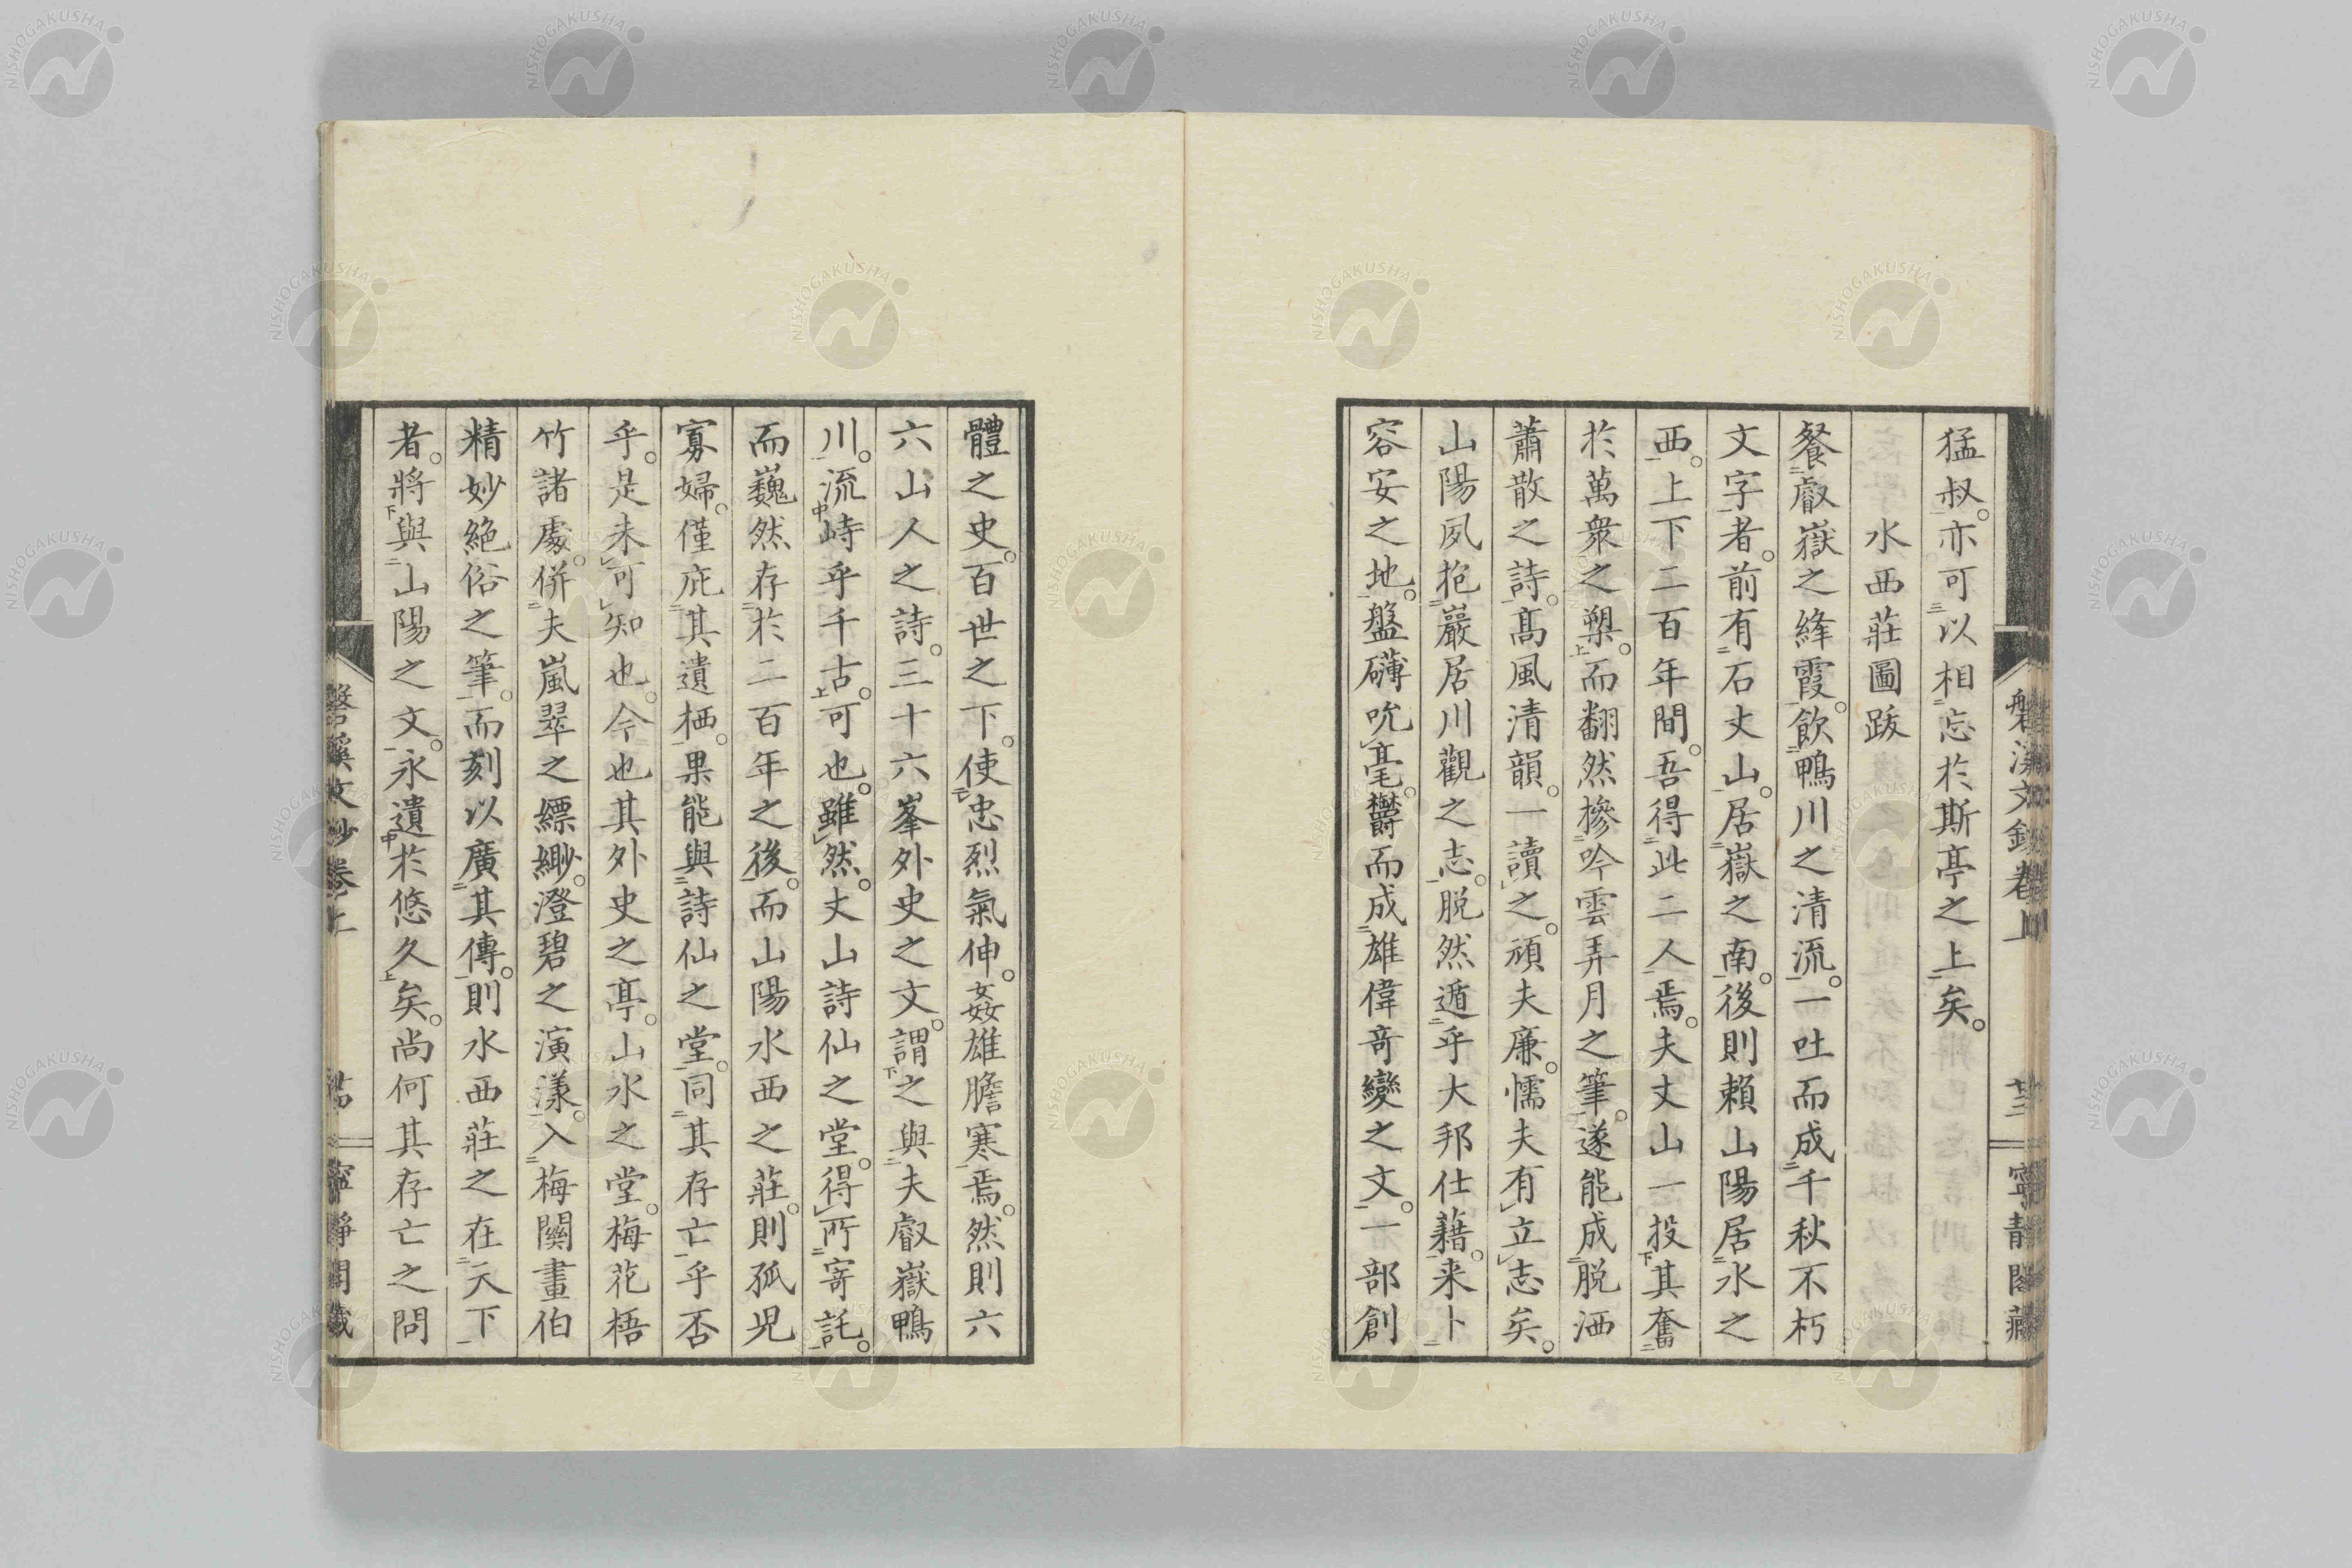 猛叔。亦可以相忘於斯亭之上矣。
水西莊圖跋
餐叡嶽之絳霞。飲鴨川之清流。一吐而成千秋不朽
文字者。前有石丈山。居嶽之南。後則賴山陽居水之
西。上下二百年間。吾得此二人焉。夫丈山一投其奮
於萬衆之槊。而翻然摻吟雲弄月之筆。遂能成脱洒
蕭散之詩。高風清韻。一讀之。頑夫廉。懦夫有立志矣。
山陽夙抱巖居川觀之志。脱然遁乎大邦仕藉。来卜
容安之地。盤礴吮毫。欝而成雄偉竒變之文。一部創
磐溪文鈔卷上 廿三 寧靜閣藏
體之史。百世之下。使忠烈氣伸。姦雄膽寒焉。然則六
六山人之詩。三十六峯外史之文。謂之與夫叡嶽鴨
川。流峙乎千古。可也。雖然。丈山詩仙之堂。得所寄託。
而巍然存於二百年之後。而山陽水西之莊。則孤児
寡婦。僅庇其遺栖。果能與詩仙之堂。同其存亡乎否
乎。是未可知也。今也其外史之亭。山水之堂。梅花梧
竹諸處。併夫嵐翠之縹緲。澄碧之演漾。入梅關畫伯
精妙絶俗之筆。而刻以廣其傳。則水西莊之在天下
者。將與山陽之文。永遺於悠久矣。尚何其存亡之問
磐溪文鈔卷上 寧靜閣藏
NISHOGAKUSHA